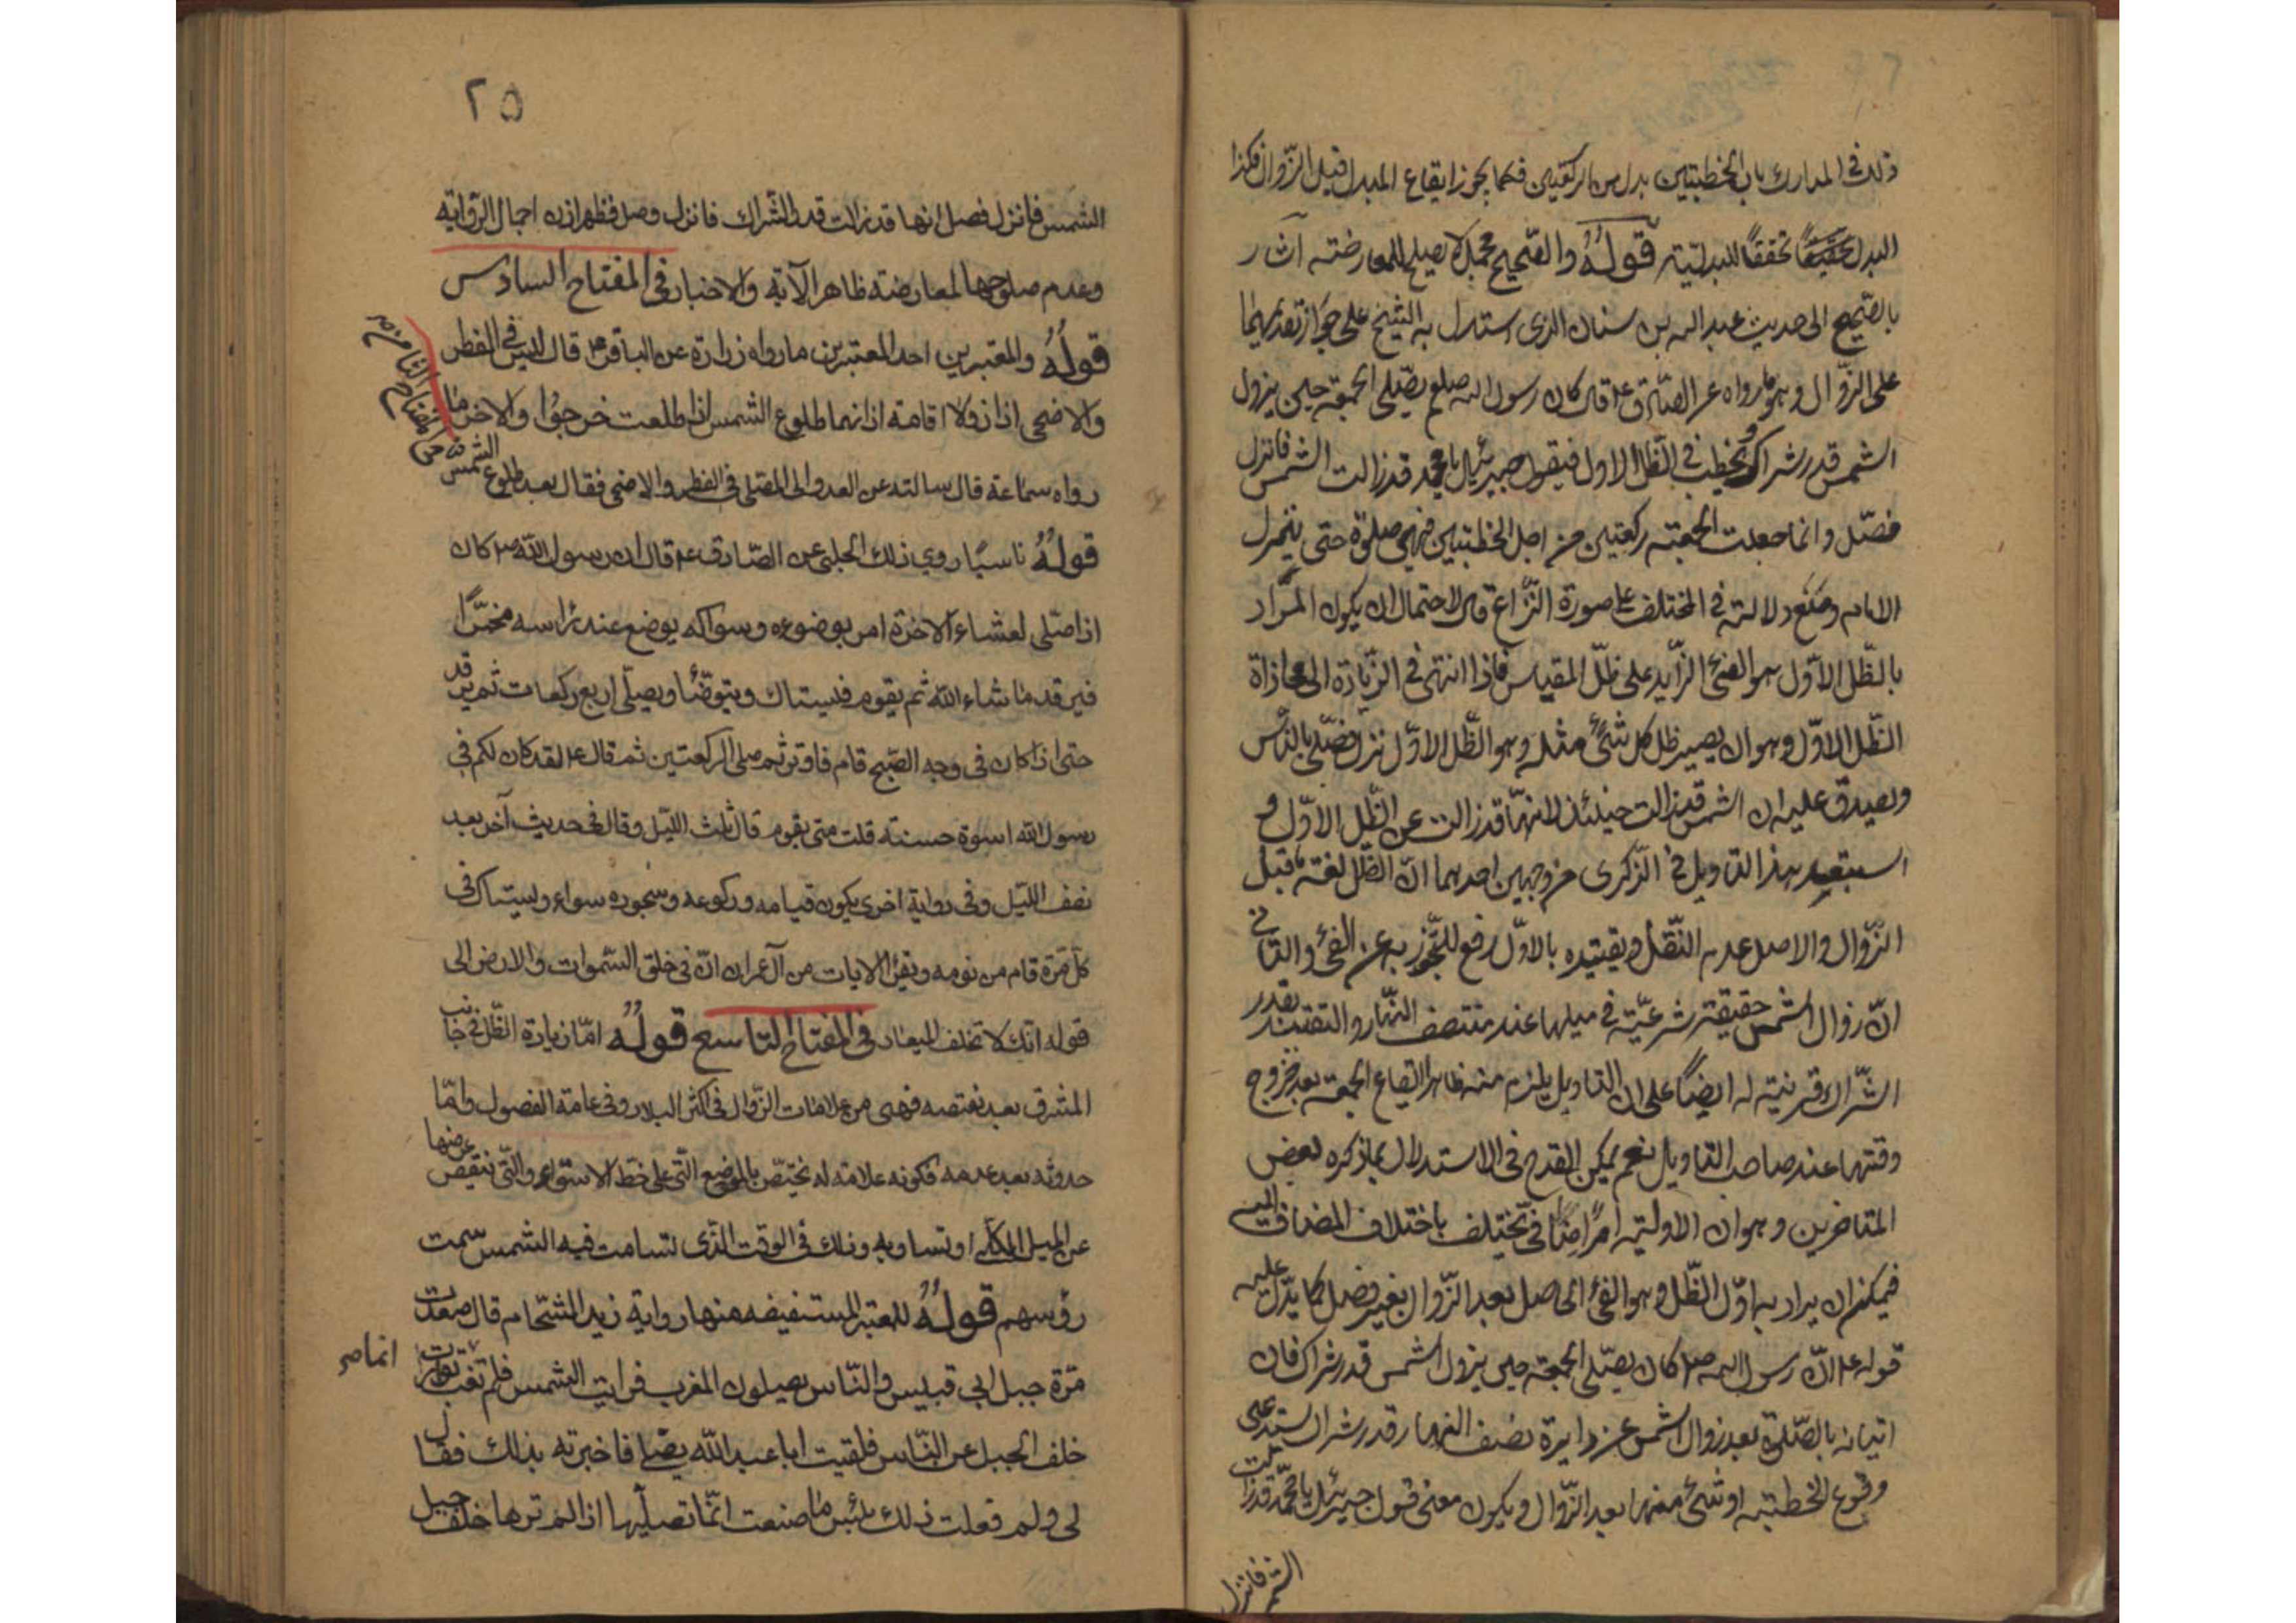 ذلك في المدارك بان الخطبتين بدل من الركعتين فكما يجوز ايقاع المبدل قبل الزوال فكذا
البدل تحقيقا تحققا للبدلية قوله والصحيح مجمل لا يصلح للمعارضته اشار
بالصحيح الى حديث عبد الله بن سنان الذى استدل به الشيخ على جواز تقديمهما
على الزوال وهو ما رواه عن الصادق ع قال كان رسول الله صلعم يصلى الجمعة حين يزول
الشمس قدر شراك ويخطب في الظل الاول فيقول جبرئيل يا محمد قد زالت الشمس فانزل
فصل وانما جعلت الجمعة ركعتين من اجل الخطبتين فهى صلوة حتى ينزل
الامام ومنع دلالته في المختلف على صورة النزاع قال لاحتمال ان يكون المراد
بالظل الاول هو الفئ الزايد على ظل المقياس فاذا انتهى في الزيادة الى محاذاة
الظل الاول وهو ان يصير ظل كل شئ مثله وهو الظل الاول نزل فصلى بالناس
ويصدق عليه ان الشمس قد زالت حينئذ لانها قد زالت عن الظل الاول و
استبعد هذا التاويل في الذكرى من وجهين احدهما ان الظل لغة ما قبل
الزوال والاصل عدم النقل وتقييده بالاول رفع للتجوز به عن الفئ والثانى
ان زوال الشمس حقيقة شرعية في ميلها عند منتصف النهار والتقييد بقدر
الشراك قرينة له ايضا على ان التاويل يلزم منه ظاهرا ايقاع الجمعة بعد خروج
وقتها عند صاحب التاويل نعم يمكن القدح في الاستدلال بما ذكره بعض
المتاخرين وهو ان الاولية امرا اضافى تختلف باختلاف المضاف اليه
فيمكن ان يراد به اول الظل وهو الفئ الحاصل بعد الزوال بغير فصل كما يدل عليه
قوله ع ان رسول الله ص كان يصلى الجمعة حين يزول الشمس قدر شراك فان
اتيانه بالصلوة بعد زوال الشمس عن دايرة نصف النهار قدر شراك يستدعى
وقوع الخطبة او شئ منها بعد الزوال ويكون معنى قول جبرئيل يا محمد قد زالت
الشمس فانزل
٢٥
الشمس فانزل فصل انها قد زالت قدر الشراك فانزل وصل فظهر ان اجمال الرواية
وعدم صلوحها لمعارضته ظاهر الآية والاخبار في المفتاح السادس
قوله والمعتبرين احد المعتبرين ما رواه زرارة عن الباقر ع قال ليس في الفطر
والاضحى اذان ولا اقامة اذانهما طلوع الشمس اذا طلعت خرجوا والاخر ما
رواه سماعة قال سالته عن الغدو الى المصلى في الفطر والاضحى فقال بعد طلوع الشمس
في المفتاح الثامن
قوله تاسيا روي ذلك الحلبى عن الصادق ع قال ان رسول الله ص كان
اذا صلى لعشاء الآخرة امر بوضوءه وسواكه يوضع عند راسه مخمرا
فيرقد ما شاء الله ثم يقوم فيستاك ويتوضأ ويصلى اربع ركعات ثم يرقد
حتى اذا كان في وجه الصبح قام فاوتر ثم صلى الركعتين ثم قال ع لقد كان لكم في
رسول الله اسوة حسنة قلت متى يقوم قال ثلث الليل وقال في حديث آخر بعد
نصف الليل وفى رواية اخرى يكون قيامه وركوعه وسجوده سواء ويستاك في
كل مرة قام من نومه ويقرأ الايات من آل عمران ان في خلق السموات والارض الى
قوله انك لا تخلف الميعاد في المفتاح التاسع قوله اما زيادة الظل في جانب
المشرق بعد نقصه فهى من علامات الزوال في اكثر البلاد وفى عامة الفصول واما
حدوثه بعد عدمه فكونه علامة له يختص بالموضع التى على خط الاستواء والتى تنقص عرضها
عن الميل الكلى او تساويه وذلك في الوقت الذى تسامت فيه الشمس سمت
رؤسهم قوله للمعتبر المستفيضه منها رواية زيد الشحام قال صعدت
مرة جبل ابى قبيس والناس يصلون المغرب فرايت الشمس فلم تغب توارت
انما ص
خلف الجبل عن الناس فلقيت ابا عبد الله يصلى فاخبرته بذلك فقال
لى ولم فعلت ذلك بئس ما صنعت انما تصليها اذا لم ترها خلف جبل